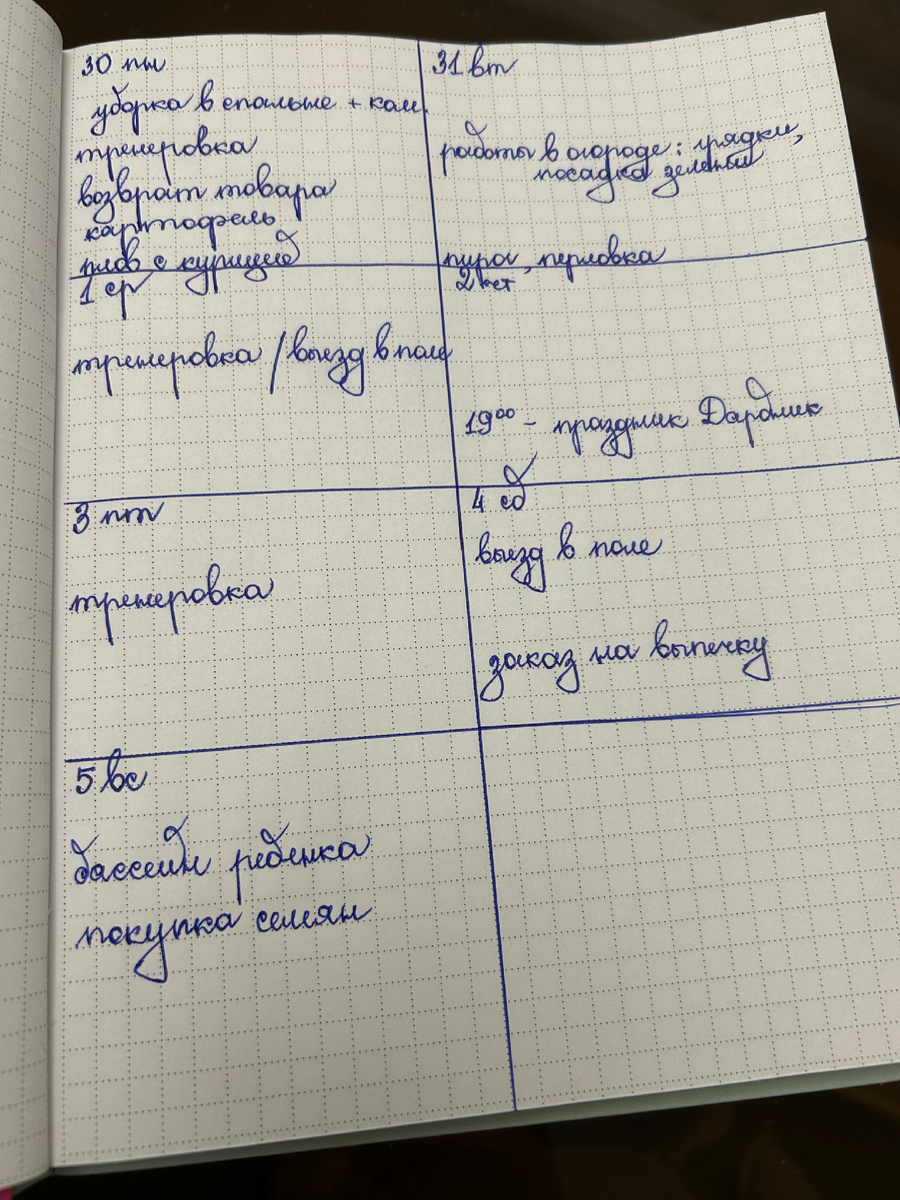 30 пн
уборка в спальне + ком.
тренировка
возврат товара
картофель
плов с курицей
31 вт
работы в огороде: грядки,
посадка зелени
пирог, перловка
1 ср
тренировка / выезд в поле
2 чет
19⁰⁰ – праздник
3 пт
тренировка
4 сб
выезд в поле
заказ на выпечку
5 вс
бассейн ребенка
покупка семян